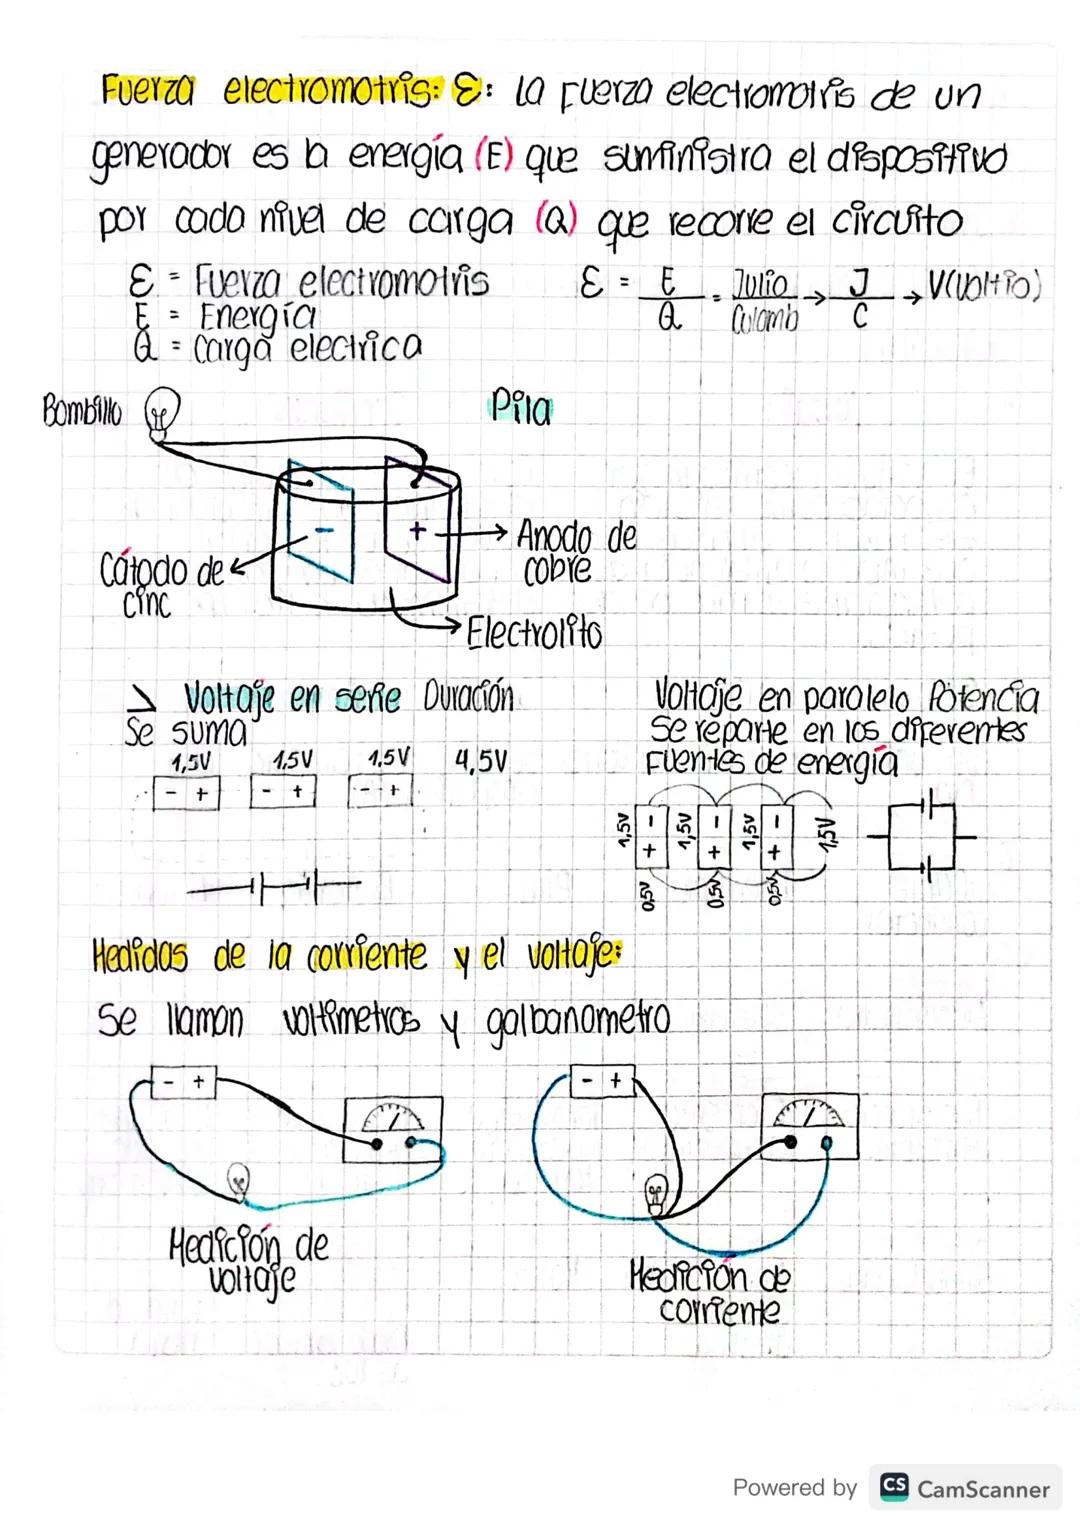 Fuerza electromotris: Ɛ: La fuerza electromotris de un
generador es la energía (E) que suministra el dispositivo
por cada nivel de carga (Q) que recorre el circuito
Ɛ = Fuerza electromotris
E = Energía
Q = carga electrica
Ɛ = E/Q = Julio/Culomb → J/C → V(Voltio)
Bombillo
Pila
- +
Anodo de
cobre
Cátodo de
cinc
Electrolito
> Voltaje en serie Duración
Se suma
1,5V 1,5V 1,5V 4,5V
- + - + - +
Voltaje en paralelo Potencia
Se reparte en los diferentes
Fuentes de energía
1,5V - + 1,5V - + 1,5V - + 1,5V
0,5V 0,5V 0,5V
Medidas de la corriente y el voltaje:
Se llaman voltimetros y galbanometro
- +
- +
Medición de
voltaje
Medición de
corriente
Powered by CS CamScanner